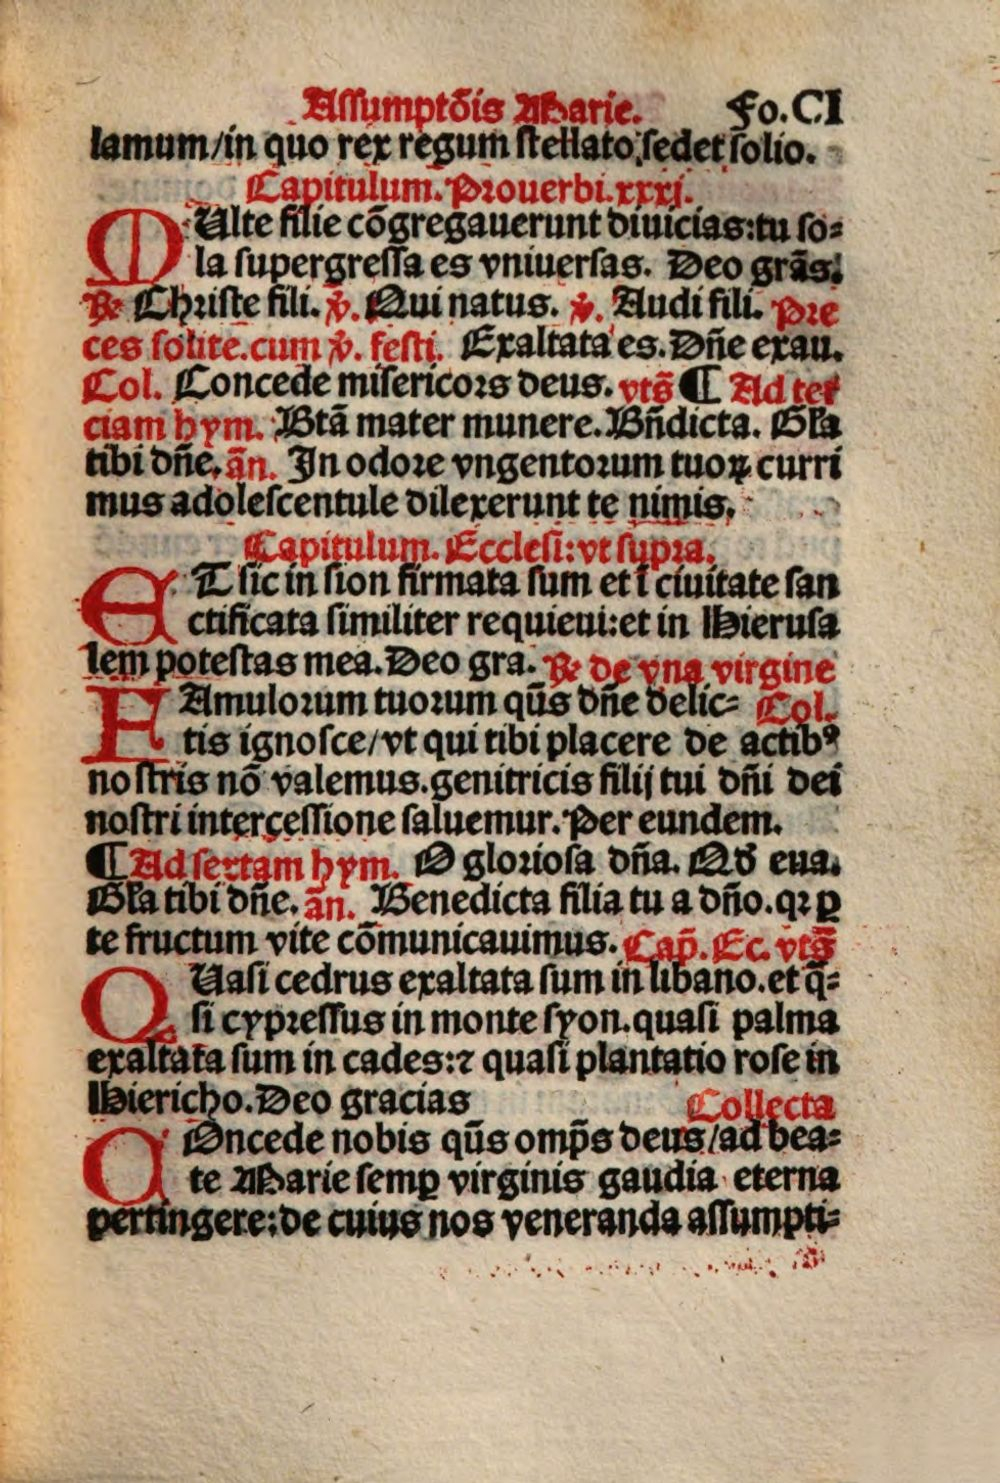 Assumptõis Marie. Fo.CI
lamum/in quo rex regum stellato sedet solio.
Capitulum. Prouerbi.xxxj.
MUlte filie cõgregauerunt diuicias:tu so=
la supergressa es vniuersas. Deo grãs.
℟ Christe fili. ℣. Qui natus. ℣. Audi fili. Pre
ces solite.cum ℣. festi. Exaltata es. Dñe exau.
Col. Concede misericors deus. vts̃ ¶ Ad ter
ciam hym. Btã mater munere. Bñdicta. Gl̃a
tibi dñe. añ. In odore vngentorum tuoꝝ curri
mus adolescentule dilexerunt te nimis.
Capitulum. Ecclesi:vt supra.
ET sic in sion firmata sum et ĩ ciuitate san
ctificata similiter requieui:et in Hierusa
lem potestas mea. Deo gra. ℟ de vna virgine
FAmulorum tuorum qũs dñe delic= Col.
tis ignosce/vt qui tibi placere de actibꝰ
nostris nõ valemus.genitricis filij tui dñi dei
nostri intercessione saluemur. Per eundem.
¶ Ad sextam hym. O gloriosa dña. Qd̃ eua.
Gl̃a tibi dñe. añ. Benedicta filia tu a dño.qꝛ ꝑ
te fructum vite cõmunicauimus. Cap̃. Ec. vts̃
QUasi cedrus exaltata sum in libano.et q̃=
si cypressus in monte syon.quasi palma
exaltata sum in cades:⁊ quasi plantatio rose in
Hiericho. Deo gracias Collecta
COncede nobis qũs omp̃s deus/ad bea=
te Marie semꝑ virginis gaudia eterna
pertingere:de cuius nos veneranda assumpti=